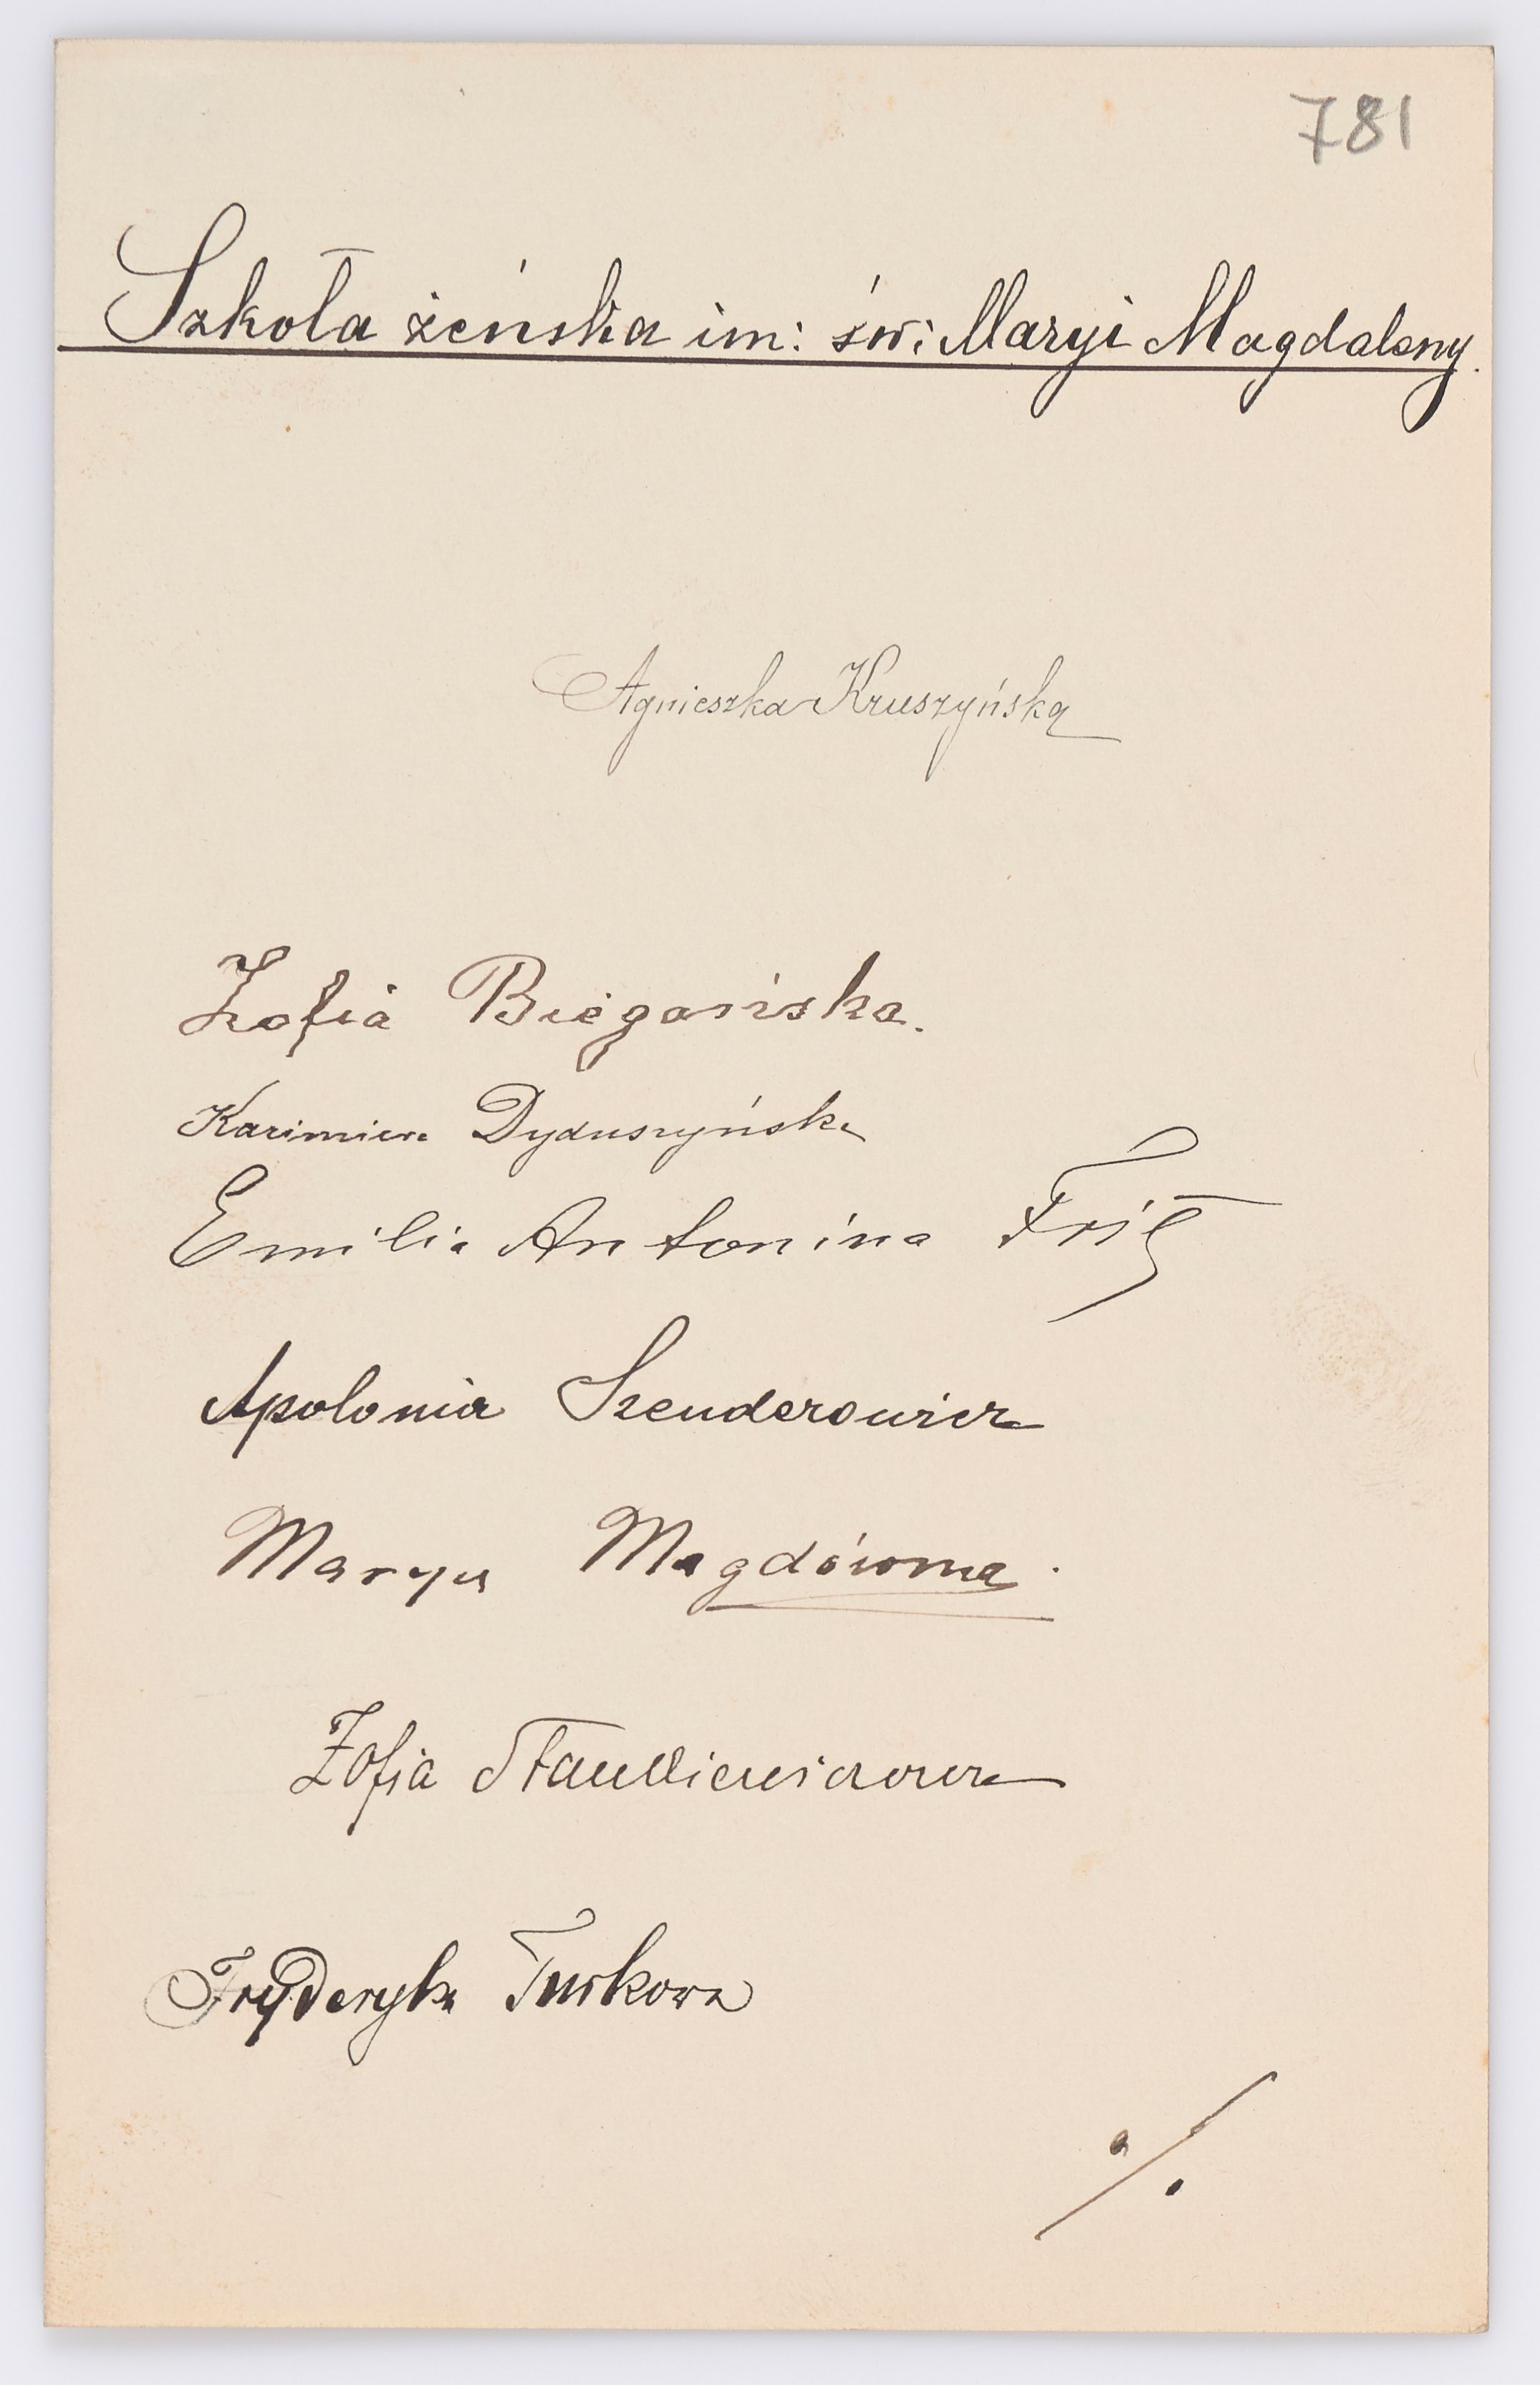 781
Szkoła żeńska im: św: Maryi Magdaleny.
Agnieszka Kruszyńska
Zofia Biegańska.
Kazimiera Dyduszyńska
Emilia Antonina Friß
Apolonia Szenderowicz
Marya Magdówna.
Zofja
Fryderyka Turkowa
./.